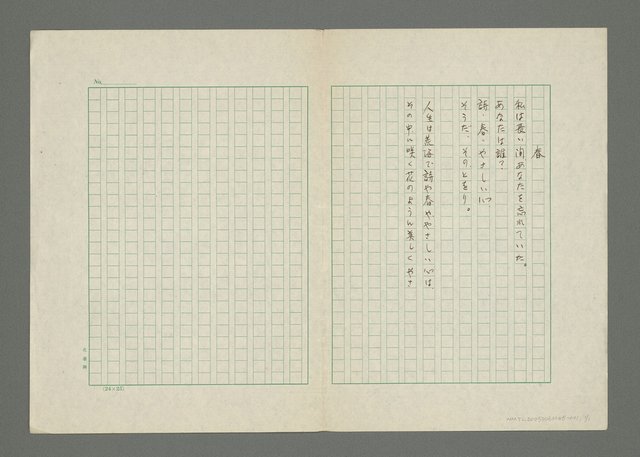 春
私は長い間あなたを忘れていた。
あなたは誰？
詩・春・やさしい心
そうだ、そのとおり。
人生は荒海で詩や春ややさしい心は
その中に咲く花のように美しくやさ
No.
(24×25)